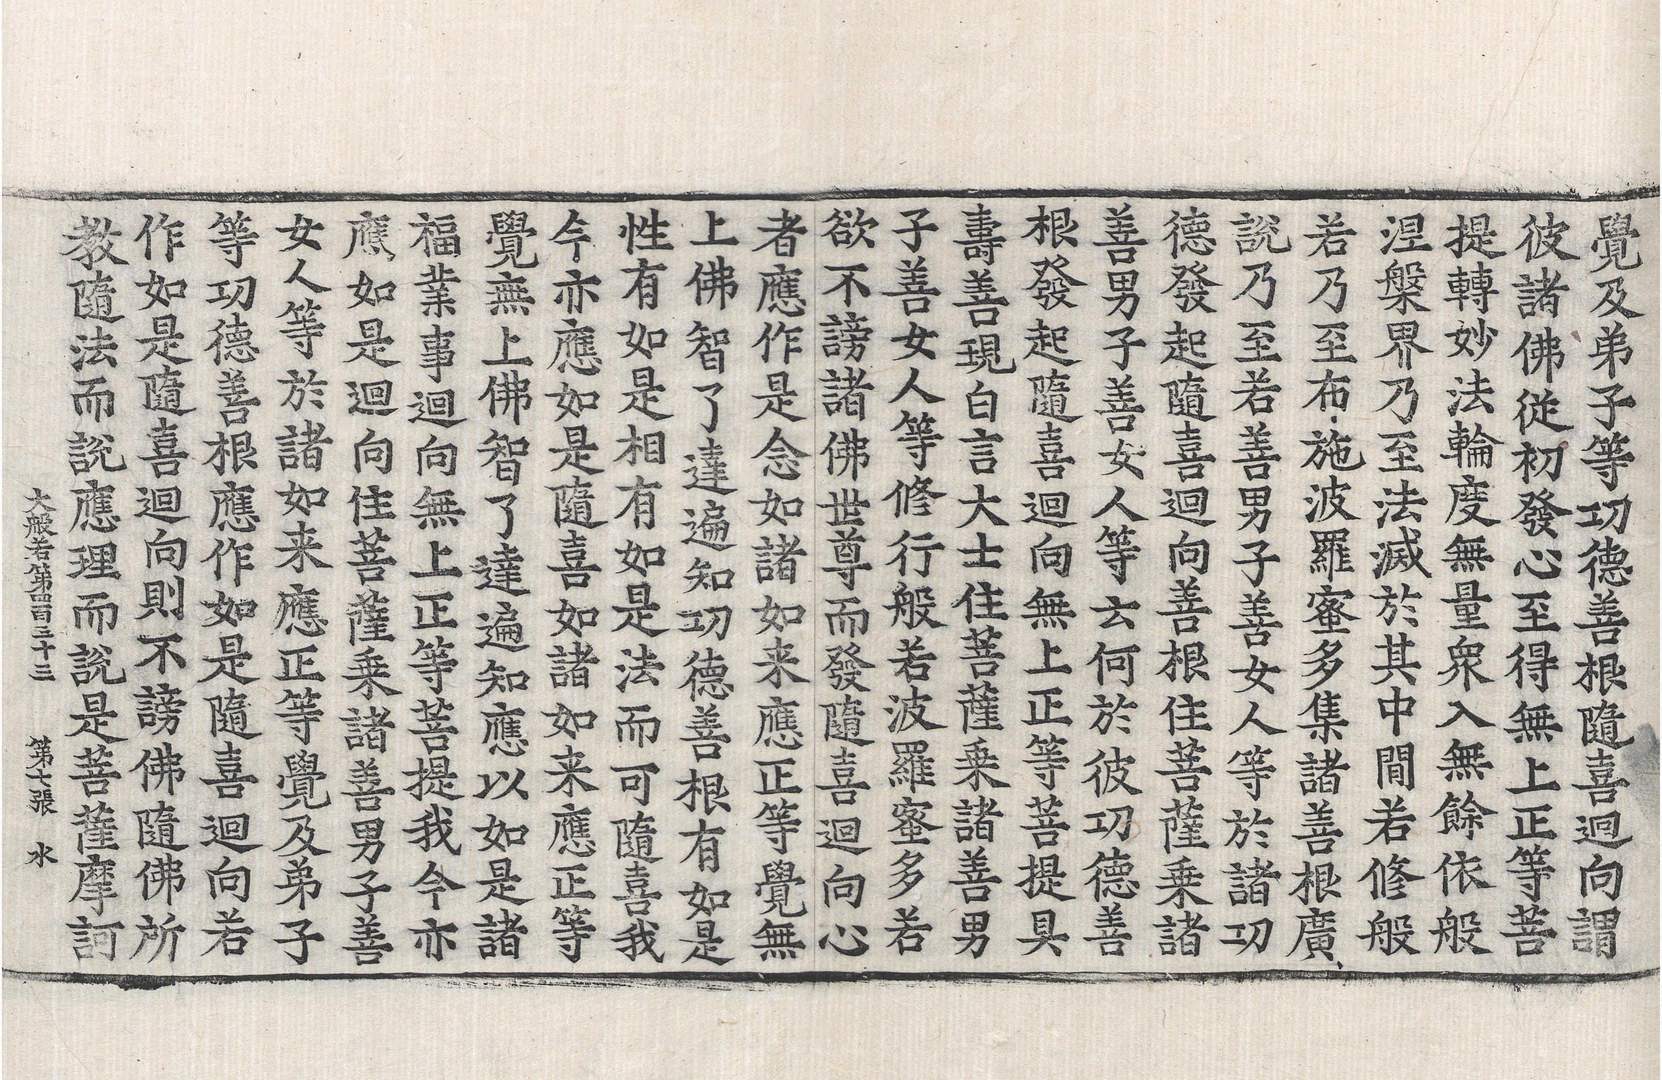 覺及弟子等功德善根隨喜迴向謂
彼諸佛從初發心至得無上正等菩
提轉妙法輪度無量衆入無餘依般
涅槃界乃至法滅於其中間若修般
若乃至布施波羅蜜多集諸善根廣
說乃至若善男子善女人等於諸功
德發起隨喜迴向善根住菩薩乗諸
善男子善女人等云何於彼功德善
根發起隨喜迴向無上正等菩提具
壽善現白言大士住菩薩乗諸善男
子善女人等修行般若波羅蜜多若
欲不謗諸佛世尊而發隨喜迴向心
者應作是念如諸如来應正等覺無
上佛智了達遍知功德善根有如是
性有如是相有如是法而可隨喜我
今亦應如是隨喜如諸如来應正等
覺無上佛智了達遍知應以如是諸
福業事迴向無上正等菩提我今亦
應如是迴向住菩薩乗諸善男子善
女人等於諸如来應正等覺及弟子
等功德善根應作如是隨喜迴向若
作如是隨喜迴向則不謗佛隨佛所
教隨法而說應理而說是菩薩摩訶
大般若第四百三十三 第七張 水